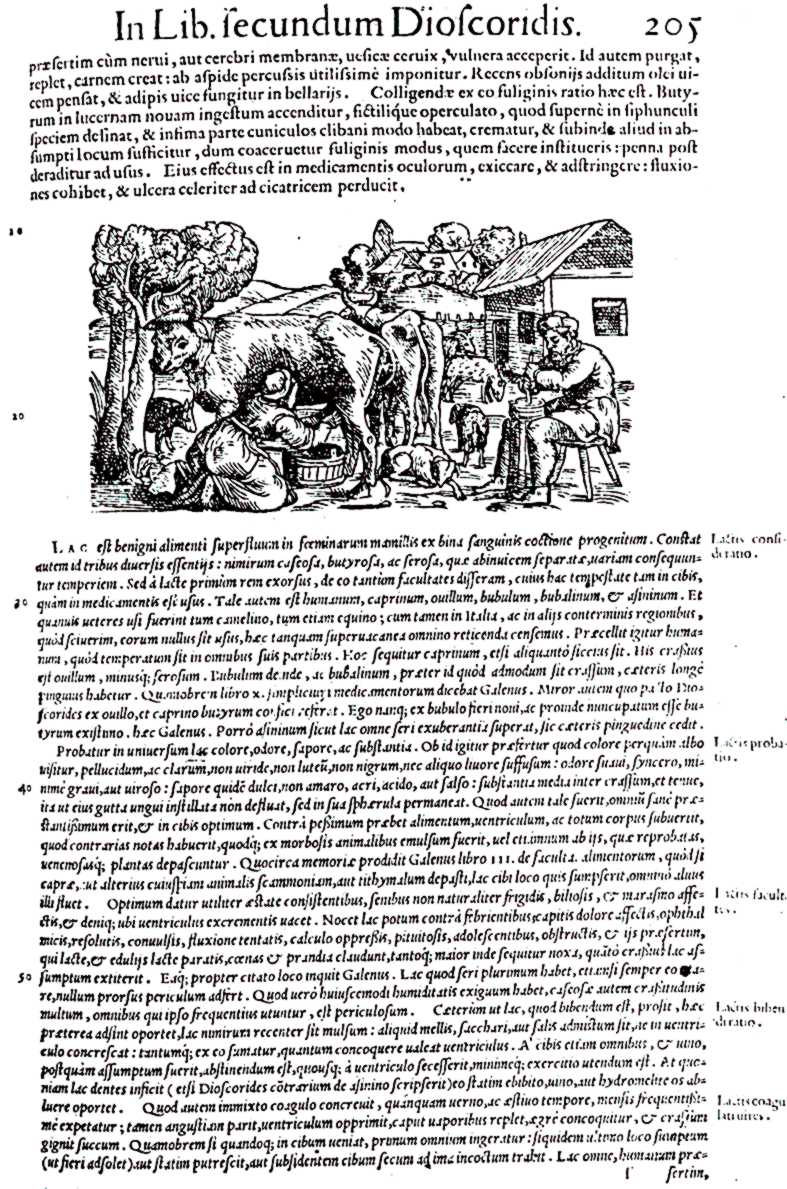 In Lib. ſecundum Dioſcoridis. 205
præſertim cùm nerui, aut cerebri membranæ, ueſicæ ceruix, vulnera acceperit. Id autem purgat,
replet, carnem creat: ab aſpide percuſsis utiliſsimè imponitur. Recens obſonijs additum olei ui-
cem penſat, & adipis uice fungitur in bellarijs. Colligendæ ex eo fuliginis ratio hæc eſt. Buty-
rum in lucernam nouam ingeſtum accenditur, fictiliq́ue operculato, quod ſupernè in ſiphunculi
ſpeciem deſinat, & infima parte cuniculos clibani modo habeat, crematur, & ſubinde aliud in ab-
ſumpti locum ſufficitur, dum coaceruetur fuliginis modus, quem facere inſtitueris: penna poſt
deraditur ad uſus. Eius effectus eſt in medicamentis oculorum, exiccare, & adſtringere: fluxio-
nes cohibet, & ulcera celeriter ad cicatricem perducit.
10
20
LAC eſt benigni alimenti ſuperfluum in fœminarum mamillis ex bina ſanguinis coctione progenitum. Conſtat
Lactis conſi-
autem id tribus diuerſis eſſentijs: nimirum caſeoſa, butyroſa, ac ſeroſa, quæ abinuicem ſeparatæ, uariam conſequun-
deratio.
tur temperiem. Sed à lacte primùm rem exorſus, de eo tantùm facultates diſſeram, cuius hac tempeſtate tam in cibis,
30 quàm in medicamentis eſt uſus. Tale autem eſt humanum, caprinum, ouillum, bubulum, bubalinum, & aſininum. Et
quanuis ueteres uſi fuerint tum camelino, tum etiam equino; cum tamen in Italia, ac in alijs conterminis regionibus,
quòd ſciuerim, eorum nullus ſit uſus, hæc tanquam ſuperuacanea omnino reticenda cenſemus. Præcellit igitur huma-
num, quòd temperatum ſit in omnibus ſuis partibus. Hoc ſequitur caprinum, etſi aliquantò ſiccius ſit. His craſsius
eſt ouillum, minusq́; ſeroſum. Bubulum deinde, ac bubalinum, præter id quòd admodum ſit craſſum, cæteris longè
pinguius habetur. Quamobrem libro x. ſimplicium medicamentorum dicebat Galenus. Miror autem quo pacto Dio-
ſcorides ex ouillo, et caprino butyrum confici referat. Ego nanq; ex bubulo fieri noui, ac proinde nuncupatum eſſe bu-
tyrum exiſtimo. hæc Galenus. Porrò aſininum ſicut lac omne ſeri exuberantia ſuperat, ſic cæteris pinguedine cedit.
Probatur in uniuerſum lac colore, odore, ſapore, ac ſubſtantia. Ob id igitur præfertur quod colore perquàm albo
Lactis proba-
uiſitur, pellucidum, ac clarum, non uiride, non luteũ, non nigrum, nec aliquo liuore ſuffuſum: odore ſuaui, ſyncero, mi-
tio.
40 nimè graui, aut uiroſo: ſapore quidẽ dulci, non amaro, acri, acido, aut ſalſo: ſubſtantia media inter craſſum, et tenue,
ita ut eius gutta ungui inſtillata non defluat, ſed in ſua ſphærula permaneat. Quod autem tale fuerit, omniũ ſanè præ-
ſtantiſsimum erit, & in cibis optimum. Contrà peſsimum præbet alimentum, uentriculum, ac totum corpus ſubuertit,
quod contrarias notas habuerit, quodq́; ex morboſis animalibus emulſum fuerit, uel etiamnum ab ijs, quæ reprobatas,
uenenoſasq́; plantas depaſcuntur. Quocirca memoriæ prodidit Galenus libro III. de facultat. alimentorum, quòd ſi
capræ, aut alterius cuiuſpiam animalis ſcammoniam, aut tithymalum depaſti, lac cibi loco quis ſumpſerit, omnino aluus
illi fluet. Optimum datur utiliter æſtate conſiſtentibus, ſenibus non naturaliter frigidis, bilioſis, & maraſmo affe-
Lactis facult.
ctis, & deniq; ubi uentriculus excrementis uacet. Nocet lac potum contrà febrientibus, capitis dolore affectis, ophthal
micis, reſolutis, conuulſis, fluxione tentatis, calculo oppreſsis, pituitoſis, adoleſcentibus, obſtructis, & ijs præſertim,
qui lacte, & edulijs lacte paratis, cœnas & prandia claudunt, tantoq́; maior inde ſequitur noxa, quãtò craſsius lac aſ-
50 ſumptum extiterit. Eaq́; propter citato loco inquit Galenus. Lac quod ſeri plurimum habet, etiamſi ſemper eo
re, nullum prorſus periculum adfert. Quod uerò huiuſcemodi humiditatis exiguum habet, caſeoſæ autem craſsitudinis
multum, omnibus qui ipſo frequentius utuntur, eſt periculoſum. Cæterùm ut lac, quod bibendum eſt, proſit, hæc
Lactis biben
præterea adſint oportet, lac nimirum recenter ſit mulſum: aliquid mellis, ſacchari, aut ſalis admiſtum ſit, ne in uentri-
di ratio.
culo concreſcat: tantumq́; ex eo ſumatur, quantum concoquere ualeat uentriculus. A cibis etiam omnibus, & uino,
poſtquàm aſſumptum fuerit, abſtinendum eſt, quouſq; à uentriculo ſeceſſerit, minimeq́; exercitio utendum eſt. At quo-
niam lac dentes inficit (etſi Dioſcorides cõtrarium de aſinino ſcripſerit) eo ſtatim ebibito, uino, aut hydromelite os ab-
luere oportet. Quod autem immixto coagulo concreuit, quanquam uerno, ac æſtiuo tempore, menſis frequentiſsi-
Lactis coagu
mè expetatur; tamen anguſtiam parit, uentriculum opprimit, caput uaporibus replet, ægrè concoquitur, & craſſum
gignit ſuccum. Quamobrem ſi quandoq; in cibum ueniat, primum omnium ingeratur: ſiquidem ultimo loco ſumptum
(ut fieri adſolet) aut ſtatim putreſcit, aut ſubſidentem cibum ſecum ad ima incoctum trahit. Lac omne, humanum præ-
ſ ſertim,